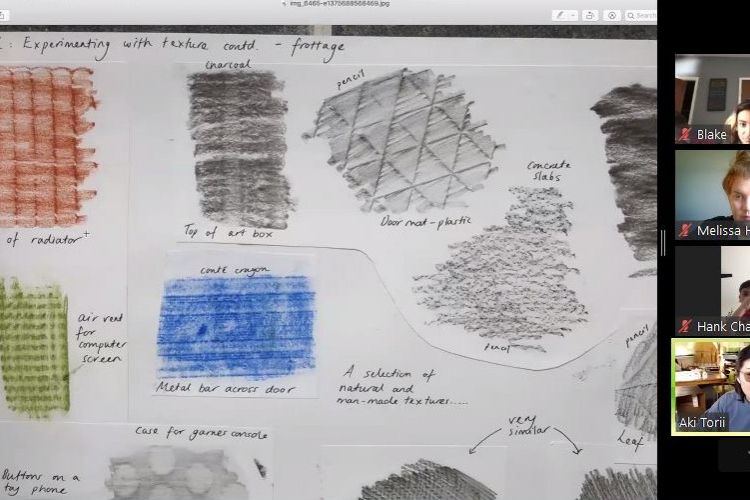 img_6465-e1375688568469.jpg
Search
: Experimenting with texture contd. - frottage
charcoal
pencil
Concrete
slabs
of radiator
Top of art box
Door mat - plastic
conté crayon
air vent
for
computer
screen
pencil
pencil
Metal bar across door
A selection of
natural and
man-made textures.....
Leaf
very
similar
Case for games console
Buttons on a
toy phone
Blake
Melissa H
Hank Cha
Aki Torii